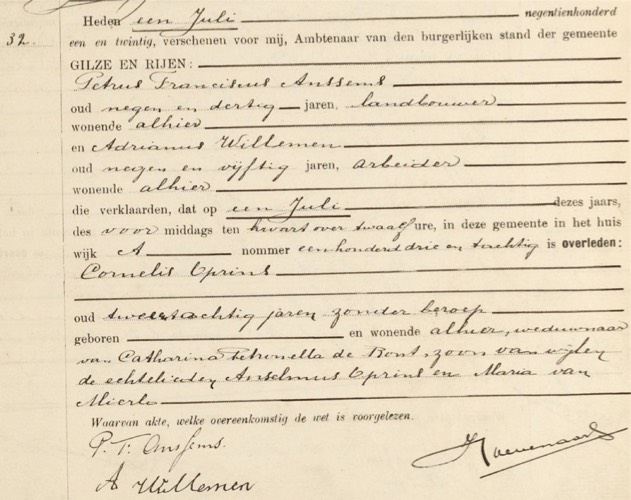 Heden een Juli negentienhonderd
32. een en twintig, verschenen voor mij, Ambtenaar van den burgerlijken stand der gemeente
GILZE EN RIJEN:
Petrus Franciscus Anssems
oud negen en dertig jaren, landbouwer
wonende alhier
en Adrianus Willemen
oud negen en vijftig jaren, arbeider
wonende alhier
die verklaarden, dat op een Juli dezes jaars,
des voor middags ten kwart over twaalf ure, in deze gemeente in het huis
wijk A nommer eenhonderd drie en tachtig is overleden:
Cornelis Oprins
oud tweeentachtig jaren zonder beroep
geboren en wonende alhier, weduwnaar
van Catharina Petronella de Bont, zoon van wijlen
de echtelieden Anselmus Oprins en Maria van
Mierlo
Waarvan akte, welke overeenkomstig de wet is voorgelezen.
P. F. Anssems.
A Willemen